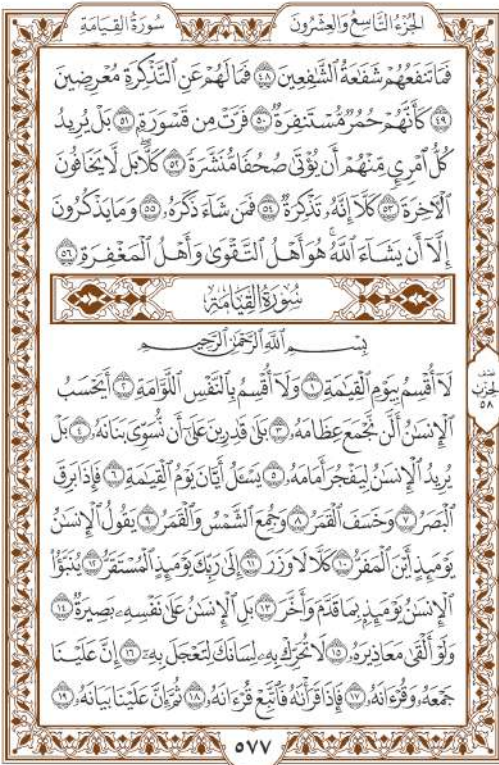 الجزء التاسع والعشرون
سورة القيامة
فَمَا تَنفَعُهُمْ شَفَٰعَةُ ٱلشَّٰفِعِينَ ٤٨ فَمَا لَهُمْ عَنِ ٱلتَّذْكِرَةِ مُعْرِضِينَ
٤٩ كَأَنَّهُمْ حُمُرٌ مُّسْتَنفِرَةٌ ٥٠ فَرَّتْ مِن قَسْوَرَةٍ ٥١ بَلْ يُرِيدُ
كُلُّ ٱمْرِئٍ مِّنْهُمْ أَن يُؤْتَىٰ صُحُفًا مُّنَشَّرَةً ٥٢ كَلَّا ۖ بَل لَّا يَخَافُونَ
ٱلْءَاخِرَةَ ٥٣ كَلَّآ إِنَّهُۥ تَذْكِرَةٌ ٥٤ فَمَن شَآءَ ذَكَرَهُۥ ٥٥ وَمَا يَذْكُرُونَ
إِلَّآ أَن يَشَآءَ ٱللَّهُ ۚ هُوَ أَهْلُ ٱلتَّقْوَىٰ وَأَهْلُ ٱلْمَغْفِرَةِ ٥٦
سُورَةُ القِيَامَةِ
بِسْمِ ٱللَّهِ ٱلرَّحْمَٰنِ ٱلرَّحِيمِ
لَآ أُقْسِمُ بِيَوْمِ ٱلْقِيَٰمَةِ ١ وَلَآ أُقْسِمُ بِٱلنَّفْسِ ٱللَّوَّامَةِ ٢ أَيَحْسَبُ
ٱلْإِنسَٰنُ أَلَّن نَّجْمَعَ عِظَامَهُۥ ٣ بَلَىٰ قَٰدِرِينَ عَلَىٰٓ أَن نُّسَوِّىَ بَنَانَهُۥ ٤ بَلْ
يُرِيدُ ٱلْإِنسَٰنُ لِيَفْجُرَ أَمَامَهُۥ ٥ يَسْـَٔلُ أَيَّانَ يَوْمُ ٱلْقِيَٰمَةِ ٦ فَإِذَا بَرِقَ
ٱلْبَصَرُ ٧ وَخَسَفَ ٱلْقَمَرُ ٨ وَجُمِعَ ٱلشَّمْسُ وَٱلْقَمَرُ ٩ يَقُولُ ٱلْإِنسَٰنُ
يَوْمَئِذٍ أَيْنَ ٱلْمَفَرُّ ١٠ كَلَّا لَا وَزَرَ ١١ إِلَىٰ رَبِّكَ يَوْمَئِذٍ ٱلْمُسْتَقَرُّ ١٢ يُنَبَّؤُا۟
ٱلْإِنسَٰنُ يَوْمَئِذٍۭ بِمَا قَدَّمَ وَأَخَّرَ ١٣ بَلِ ٱلْإِنسَٰنُ عَلَىٰ نَفْسِهِۦ بَصِيرَةٌ ١٤
وَلَوْ أَلْقَىٰ مَعَاذِيرَهُۥ ١٥ لَا تُحَرِّكْ بِهِۦ لِسَانَكَ لِتَعْجَلَ بِهِۦٓ ١٦ إِنَّ عَلَيْنَا
جَمْعَهُۥ وَقُرْءَانَهُۥ ١٧ فَإِذَا قَرَأْنَٰهُ فَٱتَّبِعْ قُرْءَانَهُۥ ١٨ ثُمَّ إِنَّ عَلَيْنَا بَيَانَهُۥ ١٩
نصف
الحزب
٥٨
٥٧٧